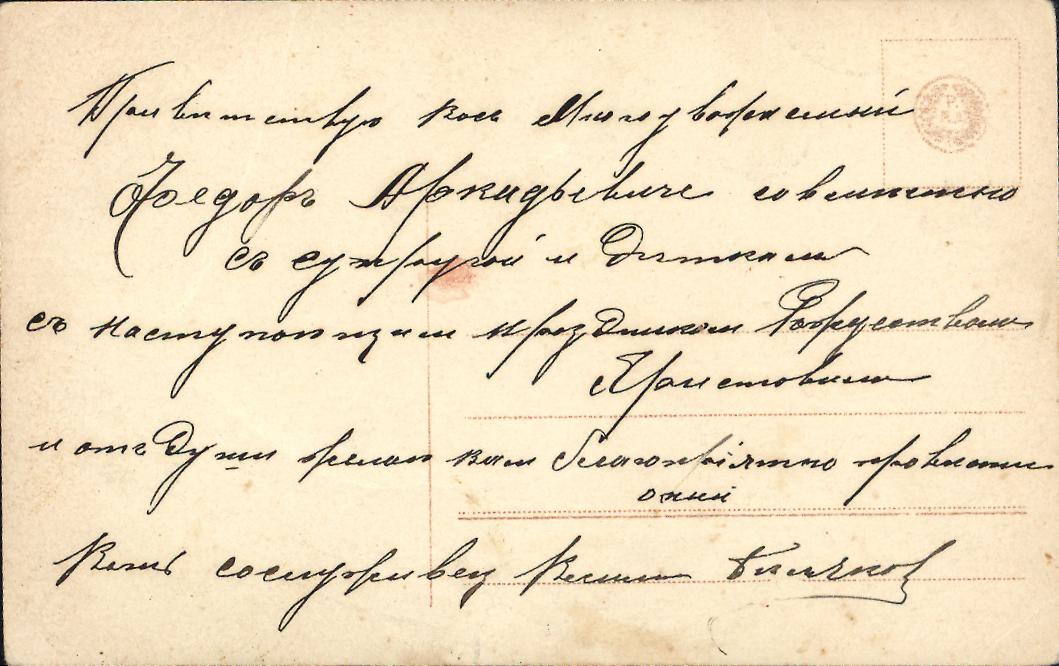 Приветствую васъ Многоуважаемый
Федоръ Аркадьевичъ совместно
съ супругой и Детками
съ наступающим праздником Рождеством
Христовым
и отъ Души желаю вам благопріятно провести
оный
Вашъ сослуживец